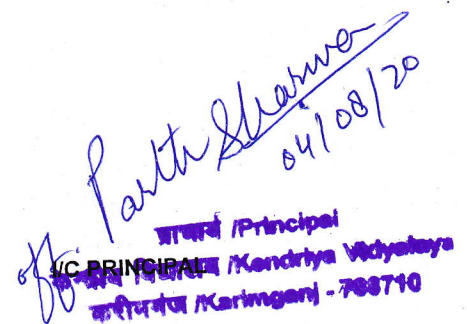 Parth Sharma
04/08/20
offg.
प्राचार्य /Principal
I/C PRINCIPAL
/Kendriya Vidyalaya
करीमगंज /Karimganj - 788710